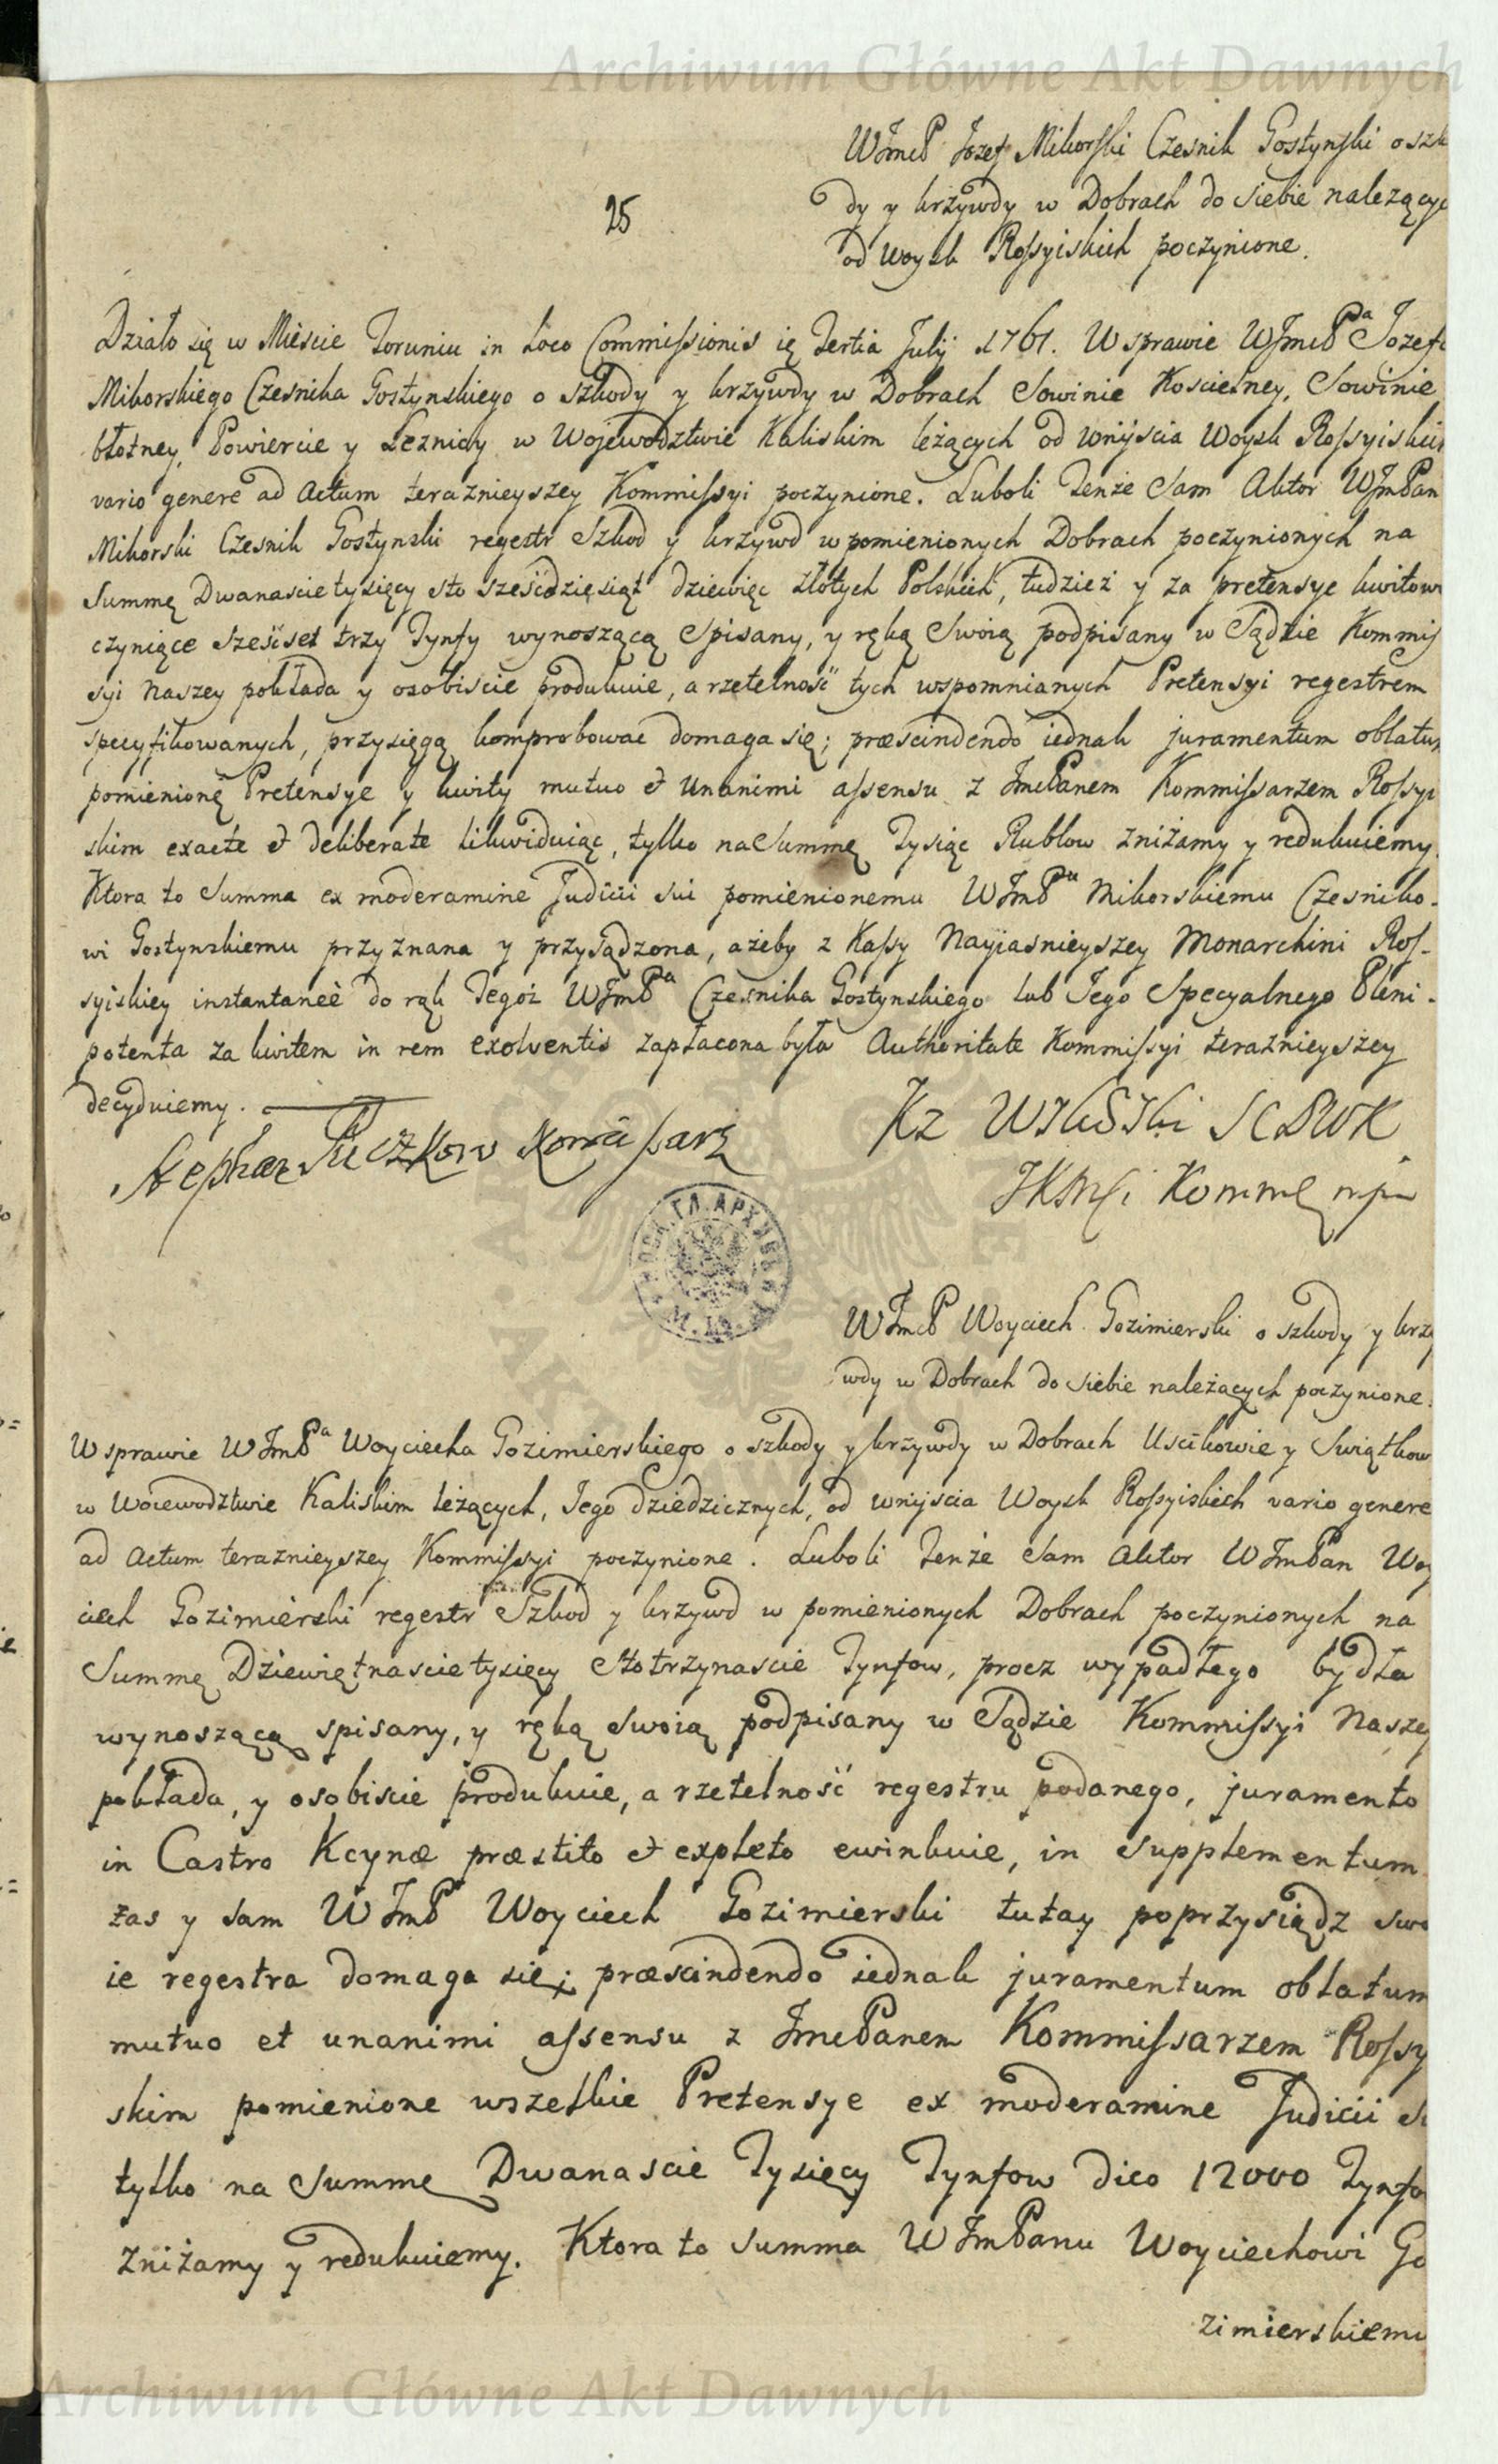 Archiwum Główne Akt Dawnych
WJmcP Jozef Mikorski Czesnik Gostynski o szko
dy y krzywdy w Dobrach do siebie nalezącyc
od Woysk Rossyiskich poczynione.
25
Działo się w Mieście Toruniu in Loco Commissionis die Tertia Julij 1761. W sprawie WJmcPa Jozefa
Mikorskiego Czesnika Gostynskiego o szkody y krzywdy w Dobrach Sowinie Koscielney, Sowinie
błotney, Powiercie y Leznicy w Wojewodztwie Kaliskim leżących od wniyscia Woysk Rossyiskich
vario genere ad Actum teraznieyszey Kommissyi poczynione. Luboli Tenże Sam Aktor WJmPan
Mikorski Czesnik Gostynski regestr Szkod y krzywd w pomienionych Dobrach poczynionych na
Summę Dwanascie tysięcy sto sześćdziesiąt dziewięc złotych Polskich, tudzież y za pretensye kwitow
czyniące sześćset trzy Tynfy wynoszącą Spisany, y ręką Swoią podpisany w Sądzie Kommis
syi Naszey pokłada y osobiscie produkuie, a rzetelność tych wspomnianych Pretensyi regestrem
specyfikowanych, przysięgą komprobowac domaga się; præscindendo iednak juramentum oblatum
pomienionę Pretensye y kwity mutuo & unanimi assensu z JmcPanem Kommissarzem Rossyi
skim exacte & deliberate likwiduiąc, tylko na Summę Tysiąc Rublow zniżamy y redukuiemy.
Ktora to Summa ex moderamine Judicii sui pomienionemu WJmPu Mikorskiemu Czesniko-
wi Gostynskiemu przyznana y przysądzona, ażeby z Kassy Nayiasnieyszey Monarchini Ros-
syiskiey instantaneè do rąk Tegóż WJmPa Czesnika Gostynskiego lub Jego Specyalnego Pleni-
potenta za kwitem in rem exolventis zapłacona była Authoritate Kommissyi teraznieyszey
decyduiemy.
Stephan Puczkow Komissarz
Kz Wilski SCBWK
JKMsi Kommę mp
WJmcP Woyciech Gozimierski o szkody y krzy
wdy w Dobrach do siebie należących poczynione.
W sprawie WJmPa Woyciecha Gozimierskiego o szkody y krzywdy w Dobrach Uscikowie y Swiątkow
w Woiewodztwie Kaliskim leżących, Jego dziedzicznych, od wniyscia Woysk Rossyiskich vario genere
ad Actum teraznieyszey Kommissyi poczynione. Luboli Tenże Sam Aktor WJmPan Woy
ciech Gozimierski regestr Szkod y krzywd w pomienionych Dobrach poczynionych na
Summę Dziewiętnascie tysięcy Sto trzynascie Tynfow, procz wypadłego bydła
wynoszącą spisany, y ręką swoią podpisany w Sądzie Kommissyi Naszey
pokłada, y osobiscie produkuie, a rzetelność regestru podanego, juramento
in Castro Kcynæ præstito & expleto ewinkuie, in supplementum
zas y sam WJmP Woyciech Gozimierski tutay poprzysiądz swo
ie regestra domaga się; præscindendo iednak juramentum oblatum
mutuo et unanimi assensu z JmcPanem Kommissarzem Rossy
skim pomienione wszelkie Pretensye ex moderamine Judicii su
tylko na Summę Dwanascie Tysięcy Tynfow dico 12000 Tynfo
zniżamy y redukuiemy. Ktora to Summa WJmPanu Woyciechowi Go
zimierskiemu
Archiwum Główne Akt Dawnych